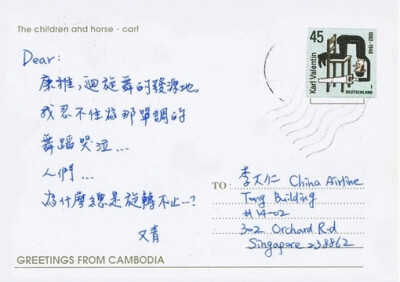 The children and horse - cart
Dear:
康雅，迴旋舞的發源地。
我忍不住為那單調的
舞蹈哭泣...
人們...
為什麼總是旋轉不止...?
又青
45
1882-1948
Karl Valentin
DEUTSCHLAND
TO:
李大仁 China Airline
Tung Building
#14-02
302 Orchard Rd
Singapore 238862
GREETINGS FROM CAMBODIA